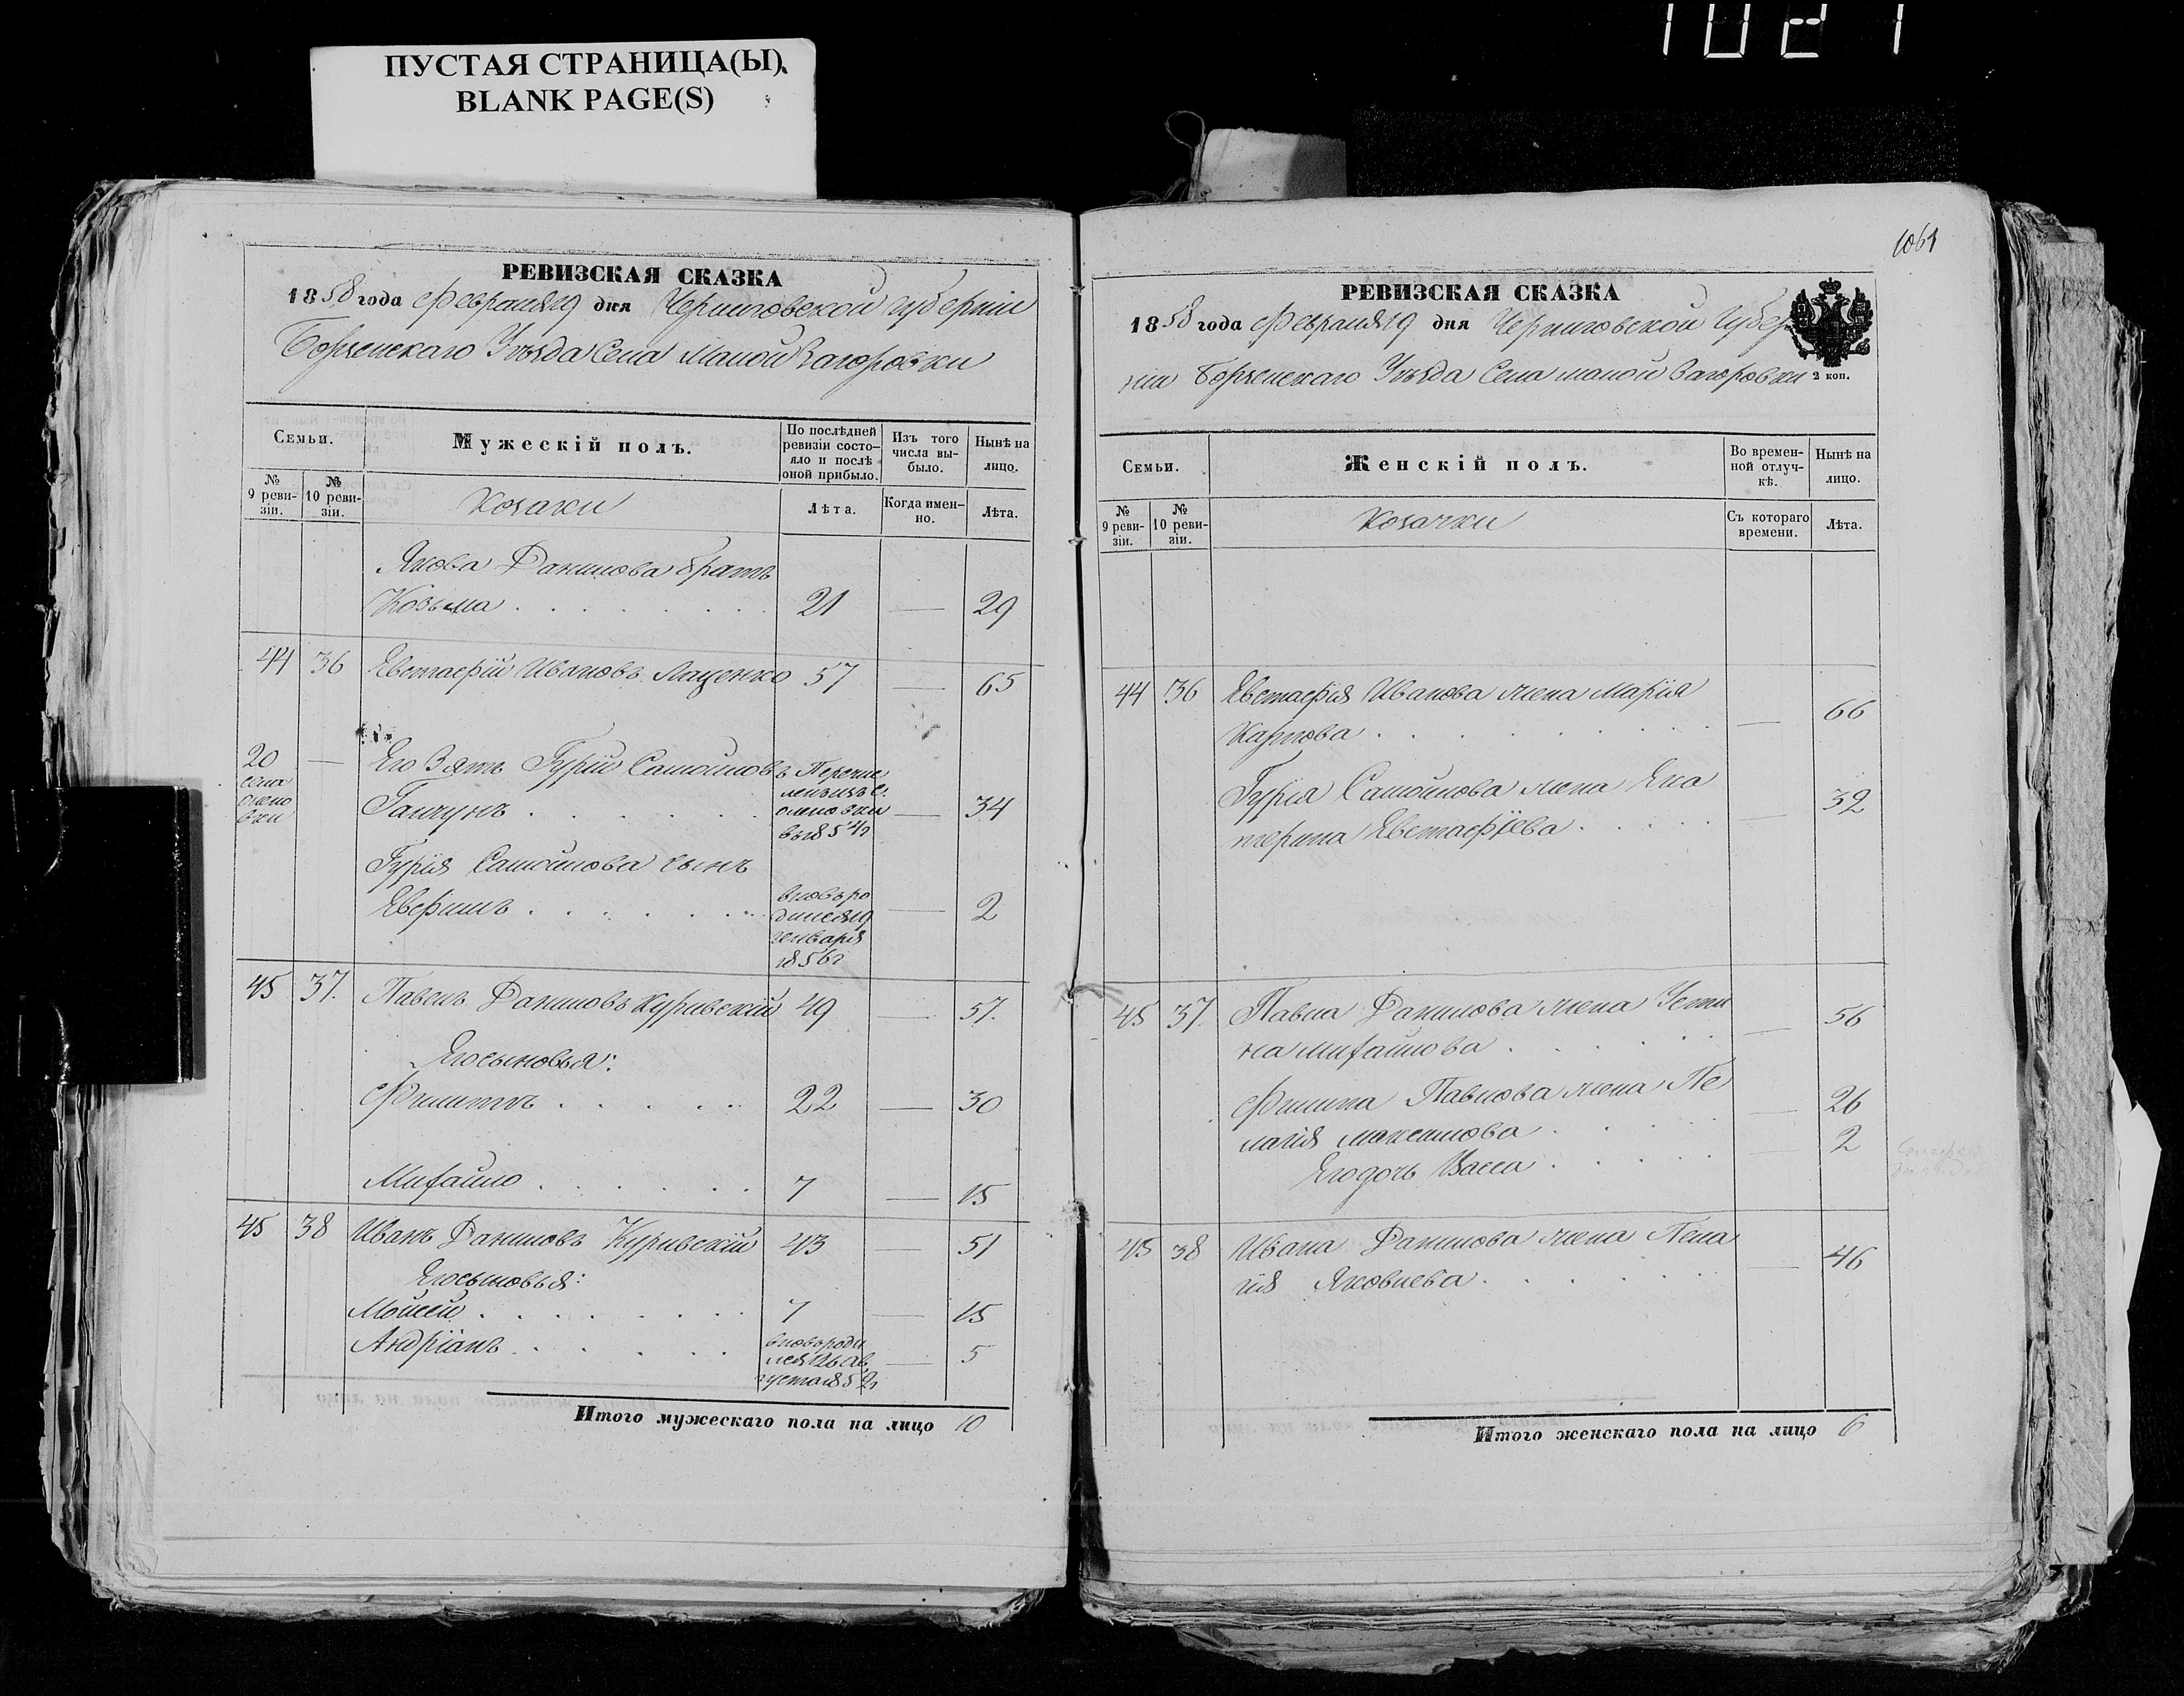 1021
ПУСТАЯ СТРАНИЦА(Ы).
BLANK PAGE(S)
РЕВИЗСКАЯ СКАЗКА
1858 года Февраля 19 дня Черниговской губерніи
Борзенскаго Уѣзда Села Малой Загоровки
Семьи.
Мужескій полъ.
По послѣдней ревизіи состояло и послѣ оной прибыло.
Изъ того числа выбыло.
Нынѣ на лицо.
№ 9 ревизіи.
№ 10 ревизіи.
Козаки
Лѣта.
Когда именно.
Лѣта.
Якова Данилова братъ
Козьма 21 — 29
44 36 Евстафій Ивановъ Лаценко 57 — 65
20 села Оленовки — Его Зять Гурій Самойловъ
Ганчунъ Перечисленъ изъ с. Оленовки въ 1854г — 34
Гурія Самойлова сынъ
вновь родился 19 генваря 1856г — 2
45 37. Павелъ Даниловъ Куривскій 49 — 57.
Его сыновья:
Филиппъ 22 — 30
Михайло 7 — 15
45 38 Иванъ Даниловъ Куривскій 43 — 51
Его сыновья:
Мойсей 7 — 15
Андріанъ вновь родился 26 августа 1852г — 5
Итого мужескаго пола на лицо 10
1061
РЕВИЗСКАЯ СКАЗКА
1858 года Февраля 19 дня Черниговской Губер
ніи Борзенскаго Уѣзда Села малой Загоровки
2 коп.
Семьи.
Женскій полъ.
Во временной отлучкѣ.
Нынѣ на лицо.
№ 9 ревизіи.
№ 10 ревизіи.
Козачки
Съ котораго времени.
Лѣта.
44 36 Евстафія Иванова жена Марія
Карпова — 66
Гурія Самойлова жена Ека
терина Евстафіева — 32
45 37. Павла Данилова жена Усти
на Михайлова — 56
Филипа Павлова жена Пе
лагія Максимова — 26
Его дочь Васса — 2
45 38 Ивана Данилова жена Пела
гія Яковлева — 46
Итого женскаго пола на лицо 6